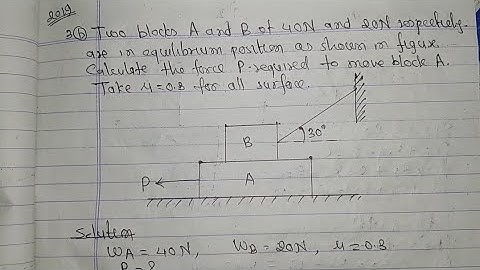 2019
3(b) Two blocks A and B of 40N and 20N respectively.
are in equilibrium position as shown in figure.
Calculate the force P required to move block A.
Take μ=0.3 for all surface.
30°
B
P
A
Solution
WA = 40N, WB = 20N, μ = 0.3
P = ?